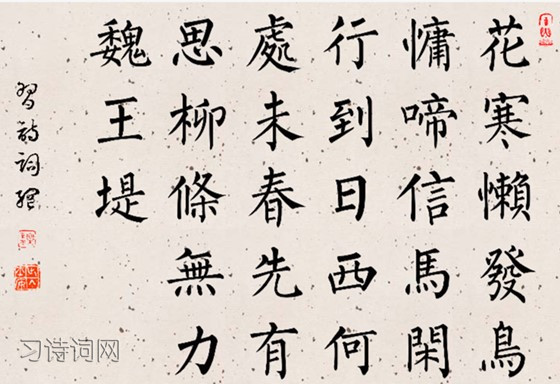 花寒懶發鳥
慵啼信馬閑
行到日西何
處未春先有
思柳條無力
魏王堤
習詩詞網
习诗词网